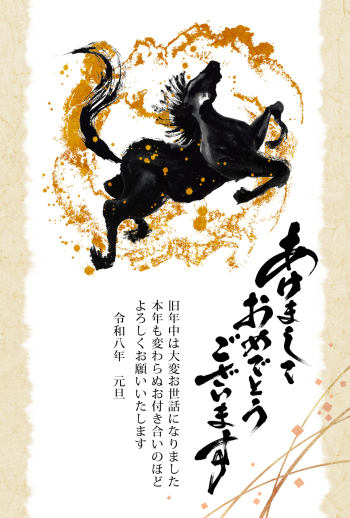 あけまして
おめでとう
ございます
旧年中は大変お世話になりました
本年も変わらぬお付き合いのほど
よろしくお願いいたします
令和八年　元旦